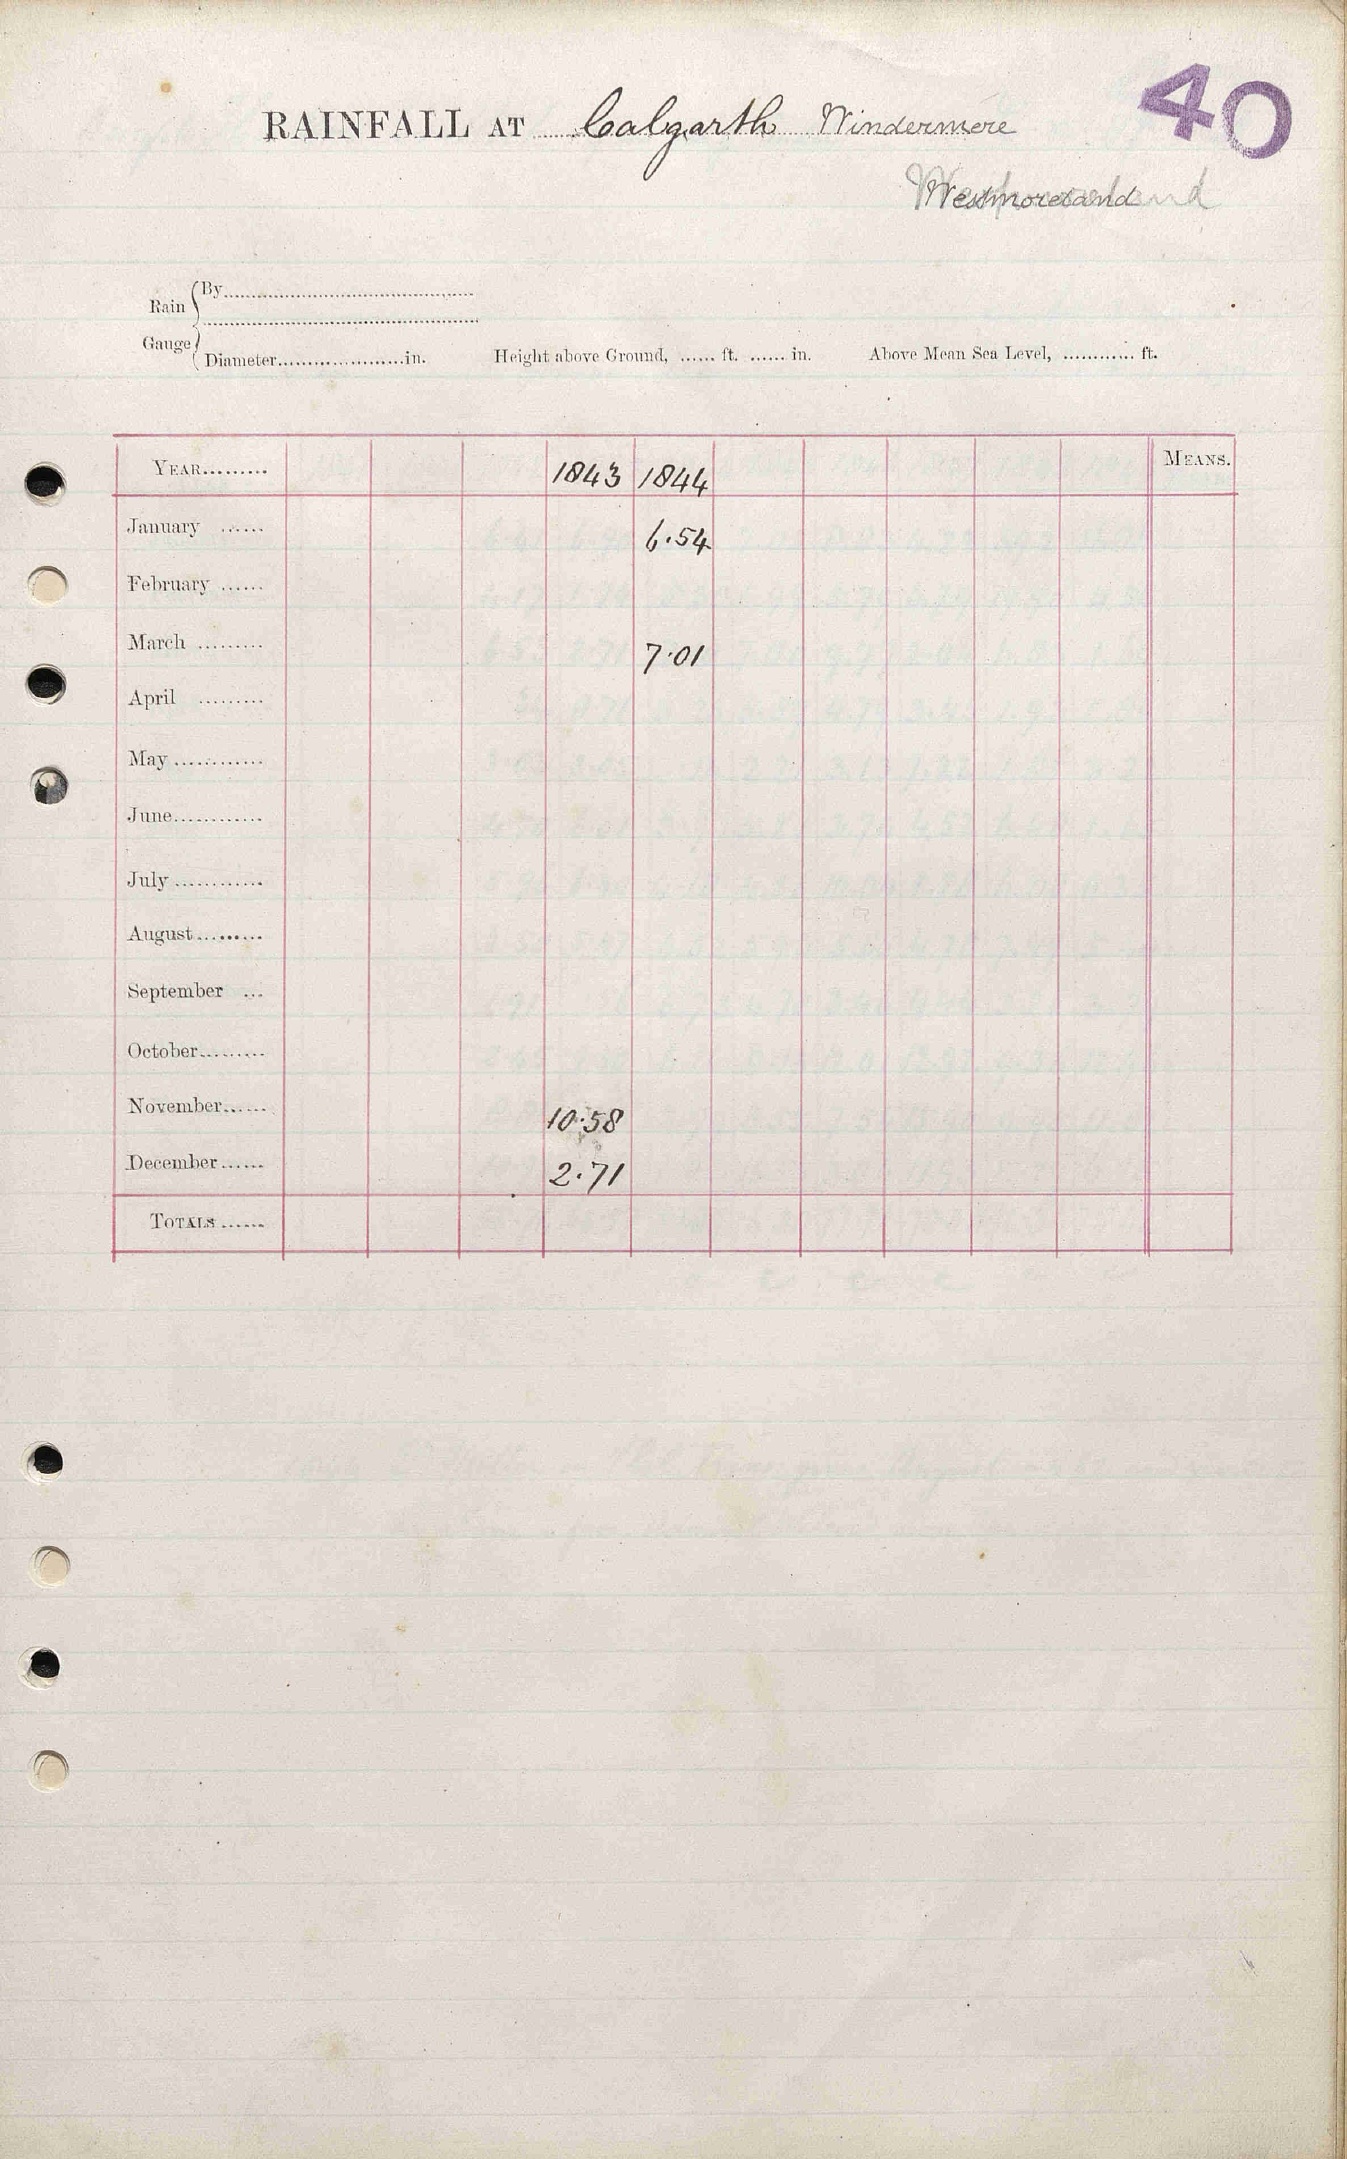 40
RAINFALL AT Calgarth Windermere
Westmoreland
Rain Gauge
By
Diameter in. Height above Ground, ft. in. Above Mean Sea Level, ft.
YEAR 1843 1844 MEANS.
January 6.54
February
March 7.01
April
May
June
July
August
September
October
November 10.58
December 2.71
TOTALS